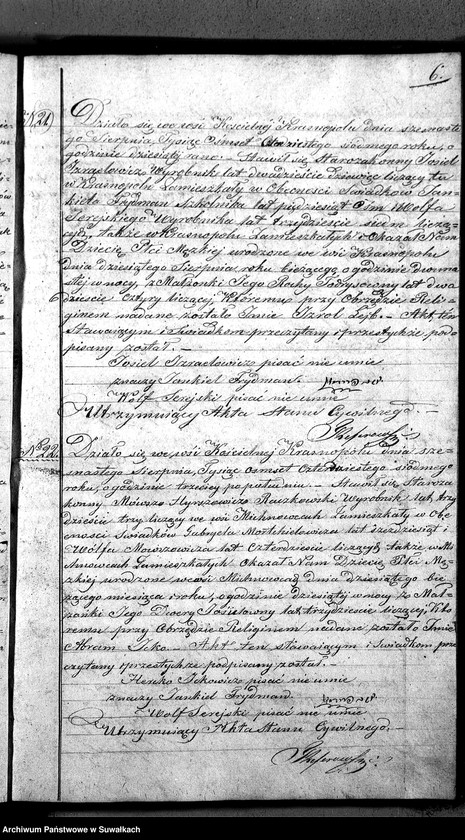 6.
N 21.
Działo się we wsi Kościelnéj Krasnopolu dnia szesnaste-
go Sierpnia Tysiąc Osmset Czterdziestego siódmego roku, o
godzinie dziesiątej rano. Stawił się Starozakonny Josiel
Izraelowicz Wyrobnik lat dwadzieścia dziewięć liczący tu
w Krasnopolu Zamieszkały w Obecności Świadków Jan-
kiela Frydman Szkolnika lat pięćdziesiąt Ośm i Wolfa
Serejskiego Wyrobnika lat trzydzieście siedm liczą-
cych, także w Krasnopolu Zamieszkałych i Okazał Nam
Dziecię Płci Męzkiej urodzone we wsi Krasnopolu
dnia dziesiątego Sierpnia, roku bieżącego, o godzinie dwuna-
stej w nocy, z Małżonki Jego Rochy lat dwa-
dzieście Cztery liczącej, Któremu przy Obrzędzie Reli-
gijnem nadane zostało Imie Izrol Lejb. Akt ten
Stawającym i Świadkom przeczytany i przez tychże pod-
pisany został. —
Josiel Izraelowicz pisać nie umie
znaczy Jankiel Frydman.
Wolf Serejski pisać nie umie
Utrzymujący Akta Stanu Cywilnego. —
No 22.
Działo się we wsi Kościelnej Krasnopolu dnia sze-
snastego Sierpnia, Tysiąc osmset Czterdziestego siódmego
roku, o godzinie trzeciej po południu. Stawił się Staroza-
konny Mowsza Raczkowski Wyrobnik lat trzy-
dzieście trzy liczący we wsi Michnowcach Zamieszkały w Obe-
cności Świadków Gabryela lat sześćdziesiąt i
Wolfa Mowszowicza lat Czterdzieście liczących także w Mi-
chnowcach Zamieszkałych Okazał Nam Dziecię Płci Mę-
zkiej urodzone we wsi Michnowcach dnia dziesiątego bie-
żącego miesiąca i roku, o godzinie dziesiątej w nocy z Mał-
żonki Jego Dwory Josielowny lat trzydzieście liczącej, Któ-
remu przy Obrzędzie Religijnem nadane zostało Imie
Abram Icko. Akt ten stawającym i Świadkom prze-
czytany i przez tychże podpisany został. —
Herśko Ickowicz pisać nie umie
znaczy Jankiel Frydman.
Wolf Serejski pisać nie umie
Utrzymujący Akta Stanu Cywilnego. —
Archiwum Państwowe w Suwałkach